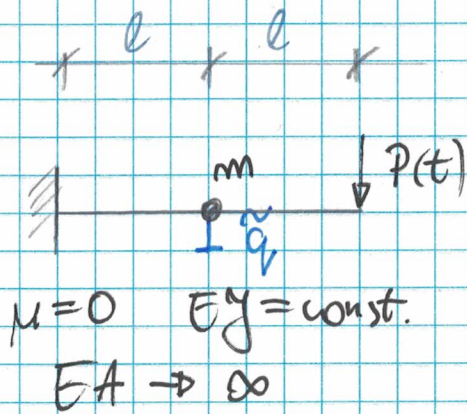 l l
m
P(t)
q̃
μ=0 EJ=const.
EA → ∞